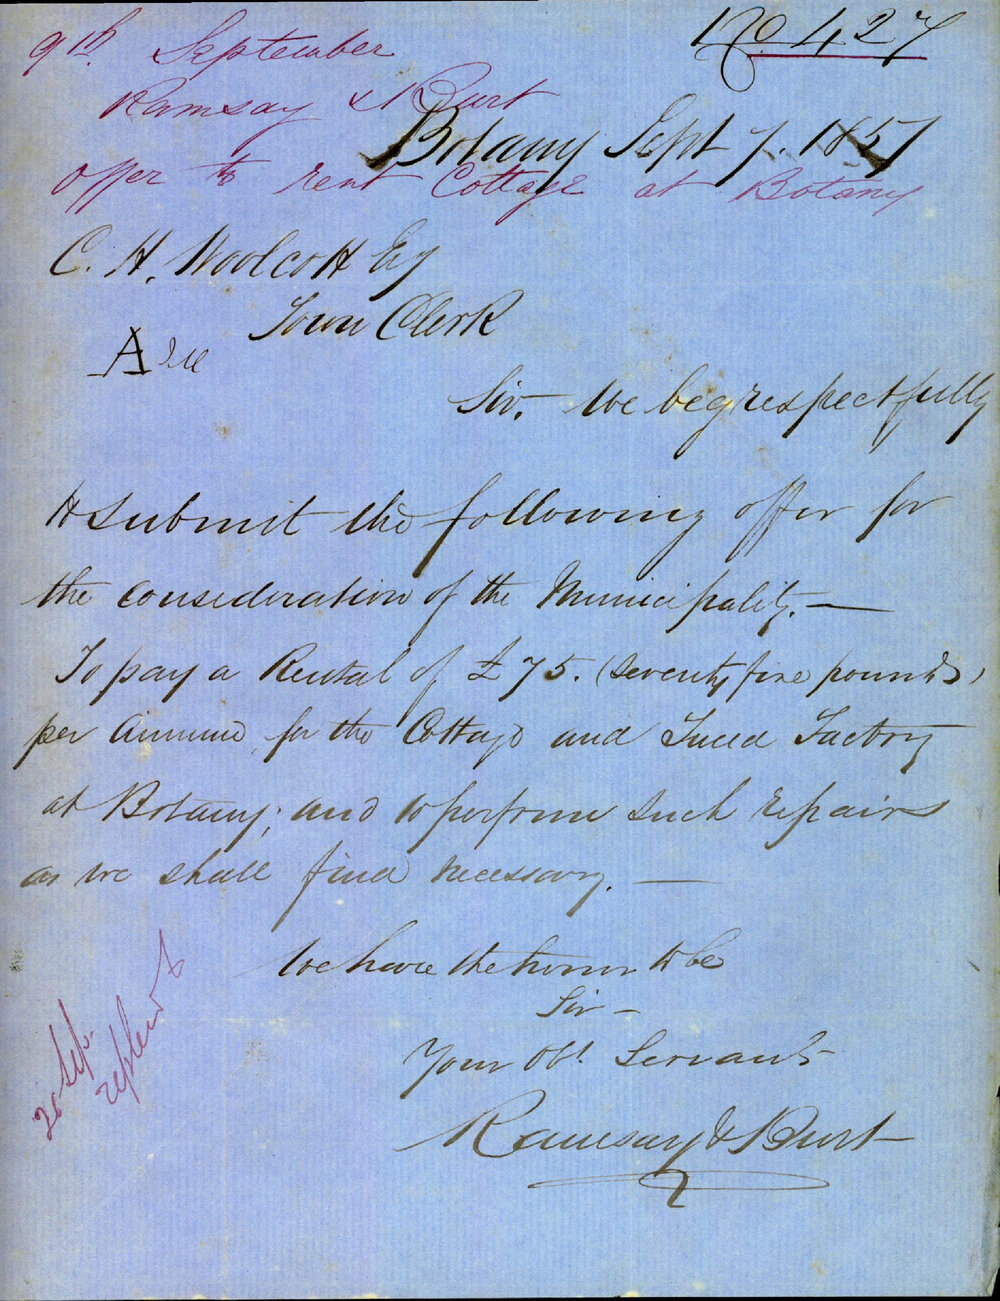 No. 427
9th. September
Ramsay & Burt
offer to rent Cottage at Botany
Botany Sept 7. 1857
C. H. Woolcott Esq
Town Clerk
Sir. We beg respectfully
to submit the following offer for
the consideration of the Municipality. —
To pay a Rental of £75. (seventy five pounds)
per annum, for the Cottage and Tweed Factory
at Botany; and to perform such repairs
as we shall find necessary. —
We have the honor to be
Sir —
Your Obt. Servants
Ramsay & Burt
20 Sep.
replied to